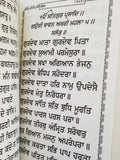 ੴ ਸਤਿਗੁਰ ਪ੍ਰਸਾਦਿ ॥
ਗਉੜੀ ਬਾਵਨ ਅਖਰੀ ਮਹਲਾ ੫ ॥
ਸਲੋਕੁ ॥
ਗੁਰਦੇਵ ਮਾਤਾ ਗੁਰਦੇਵ ਪਿਤਾ
ਗੁਰਦੇਵ ਸੁਆਮੀ ਪਰਮੇਸੁਰਾ ॥
ਗੁਰਦੇਵ ਸਖਾ ਅਗਿਆਨ ਭੰਜਨੁ
ਗੁਰਦੇਵ ਬੰਧਿਪ ਸਹੋਦਰਾ ॥
ਗੁਰਦੇਵ ਦਾਤਾ ਹਰਿ ਨਾਮੁ ਉਪਦੇਸੈ
ਗੁਰਦੇਵ ਮੰਤੁ ਨਿਰੋਧਰਾ ॥
ਗੁਰਦੇਵ ਸਾਂਤਿ ਸਤਿ ਬੁਧਿ ਮੂਰਤਿ
ਗੁਰਦੇਵ ਪਾਰਸ ਪਰਸ ਪਰਾ ॥
ਗੁਰਦੇਵ ਤੀਰਥੁ ਅੰਮ੍ਰਿਤ ਸਰੋਵਰੁ
ਗੁਰ ਗਿਆਨ ਮਜਨੁ ਅਪਰੰਪਰਾ ॥
ਗੁਰਦੇਵ ਕਰਤਾ ਸਭਿ ਪਾਪ ਹਰਤਾ